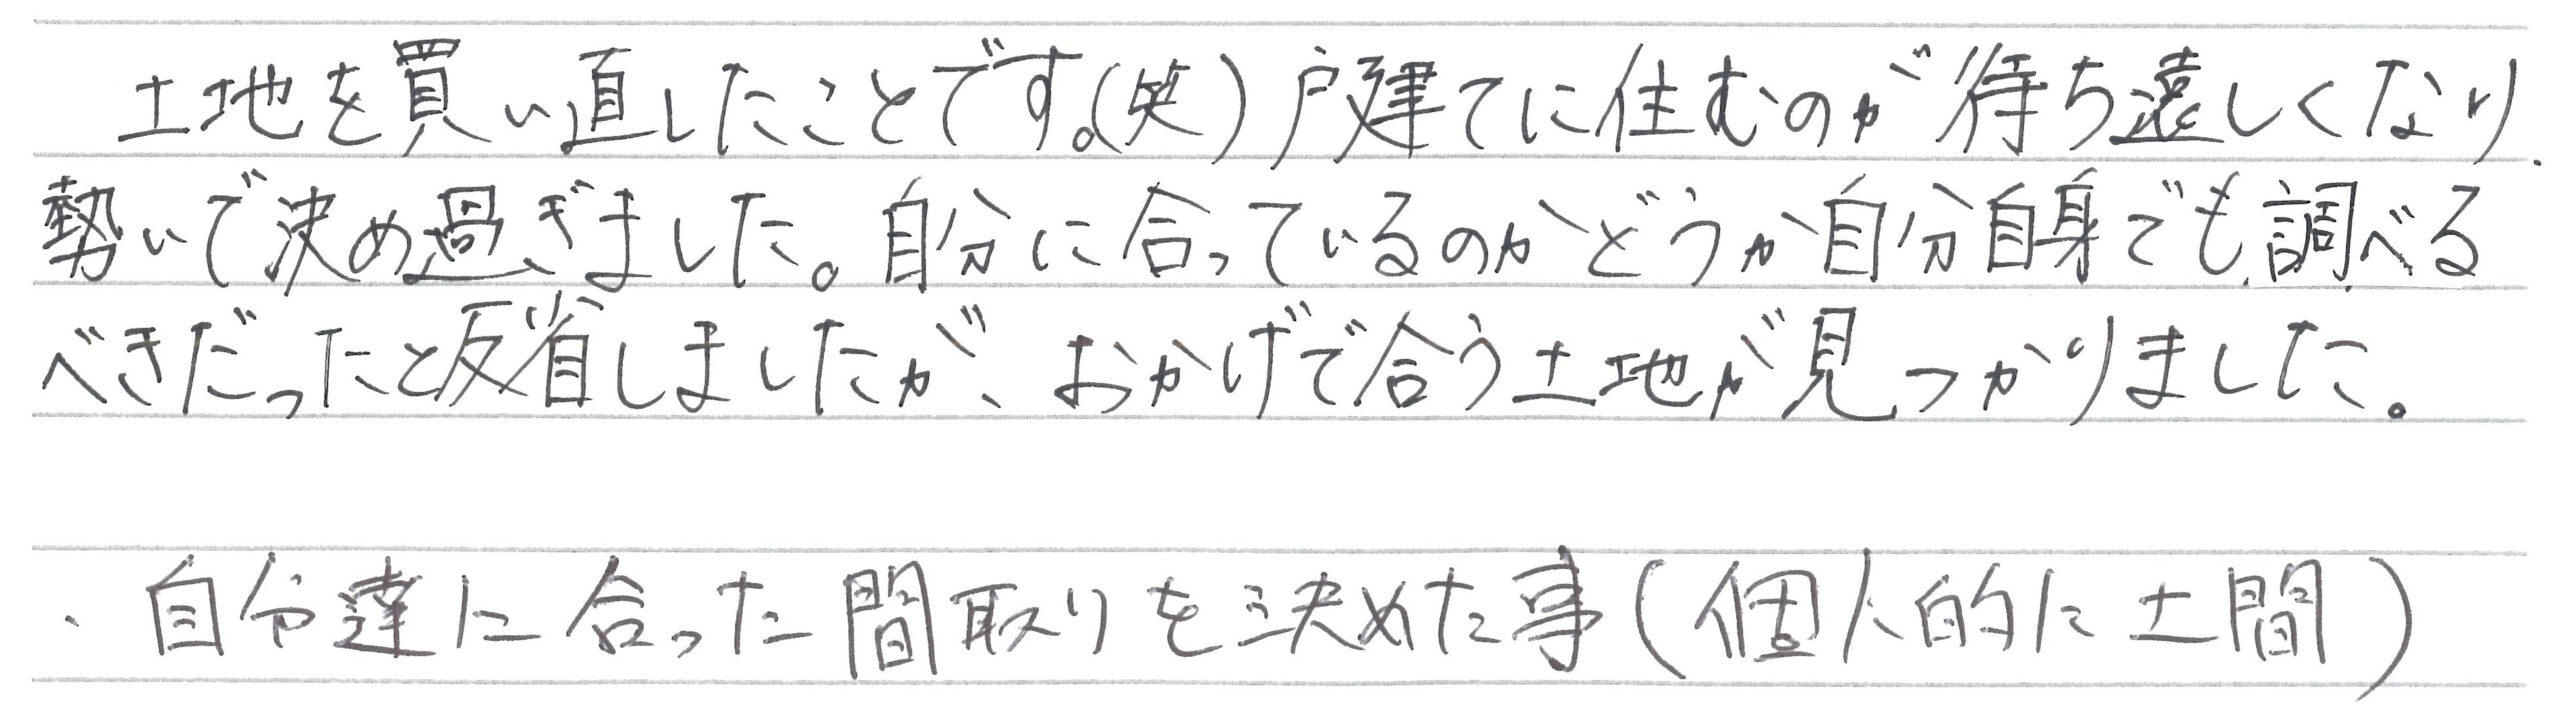 土地を買い直したことです。(笑)戸建てに住むのが待ち遠しくなり
勢いで決め過ぎました。自分に合っているのかどうか自分自身でも調べる
べきだったと反省しましたが、おかげで合う土地が見つかりました。
・自分達に合った間取りを決めた事(個人的に土間)